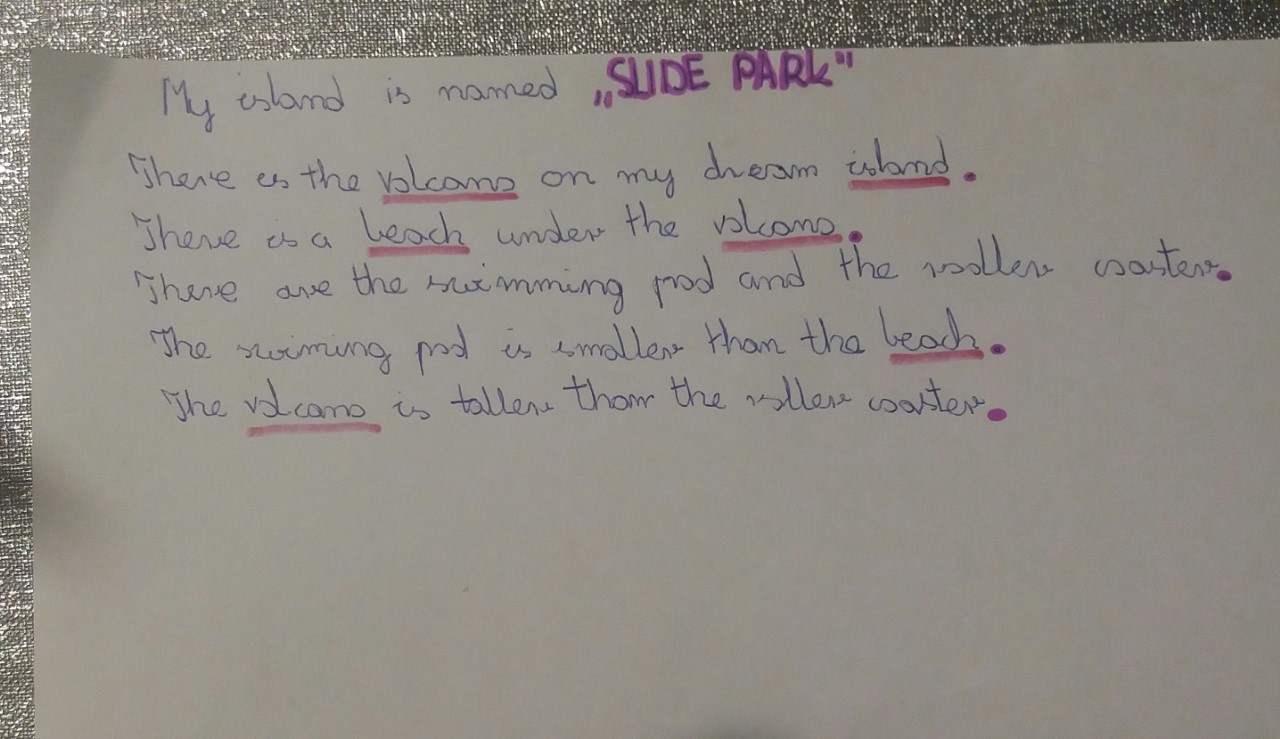 My island is named „SLIDE PARK"
There is the volcano on my dream island.
There is a beach under the volcano.
There are the swimming pool and the roller coaster.
The swiming pool is smaller than the beach.
The volcano is taller than the roller coaster.